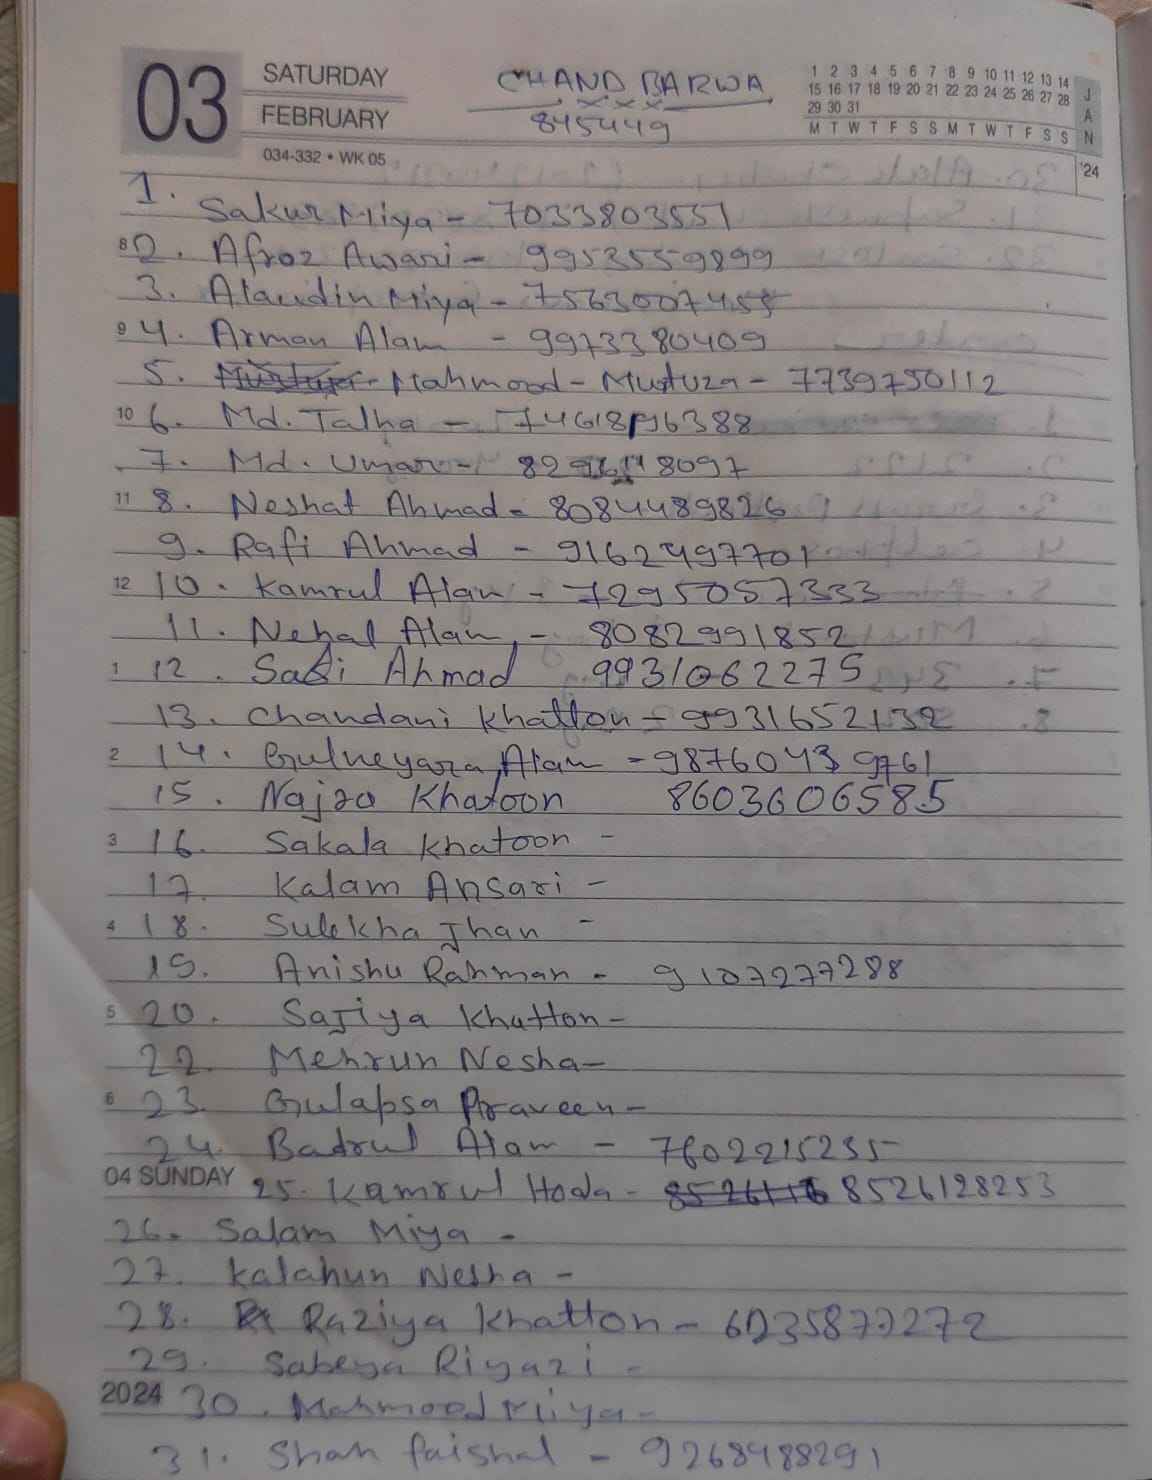 03 SATURDAY FEBRUARY
034-332 • WK 05
CHAND BARWA
845449
1 2 3 4 5 6 7 8 9 10 11 12 13 14
15 16 17 18 19 20 21 22 23 24 25 26 27 28
29 30 31
M T W T F S S M T W T F S S
JAN
'24
1. Sakur Miya - 7033803551
8 2. Afroz Awari - 9953559899
3. Alaudin Miya - 7563007455
9 4. Arman Alam - 9973380409
5. Mahmood - Mustuza - 7739750112
10 6. Md. Talha -
7. Md. Umar -
11 8. Neshat Ahmad - 8084489826
9. Rafi Ahmad - 9162497701
12 10. Kamrul Alam - 7295057333
11. Nehal Alam - 8082991852
1 12. Safi Ahmad 9931062275
13. Chandani Khatton - 9931652132
2 14. Gulneyara Alam -
15. Najra Khatoon 8603606585
3 16. Sakala Khatoon -
17. Kalam Ansari -
4 18. Sulekha Jhan -
19. Anishu Rahman - 9107277288
5 20. Sajiya Khatton -
22. Mehrun Nesha -
6 23. Gulapsa Praveen -
24. Badrul Alam - 7602215235
04 SUNDAY 25. Kamrul Hoda - 8526128253
26. Salam Miya -
27. Kalahun Nesha -
28. Raziya Khatton -
29. Sabeya Riyazi -
2024 30. Mahmood Miya -
31. Shah faishal - 9268988291